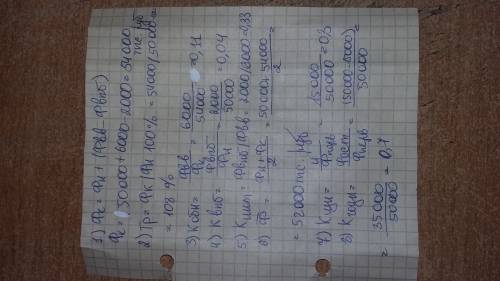 1) Фс = Фн + (Фвв - Фвыб)
Фс = 50000 + 6000 - 2000 = 54000 тыс. руб
2) Тр = Фк / Фн 100% = 54000 / 50000 =
= 108 %
3) Кобн = Фвв / Фк = 6000 / 54000 = 0,11
4) Квыб = Фвыб / Фн = 2000 / 50000 = 0,04
5) Кинт = Фвыб / Фвв = 2000 / 6000 = 0,33
6) Ф̅ = Фн + Фс / 2 = 50000 + 54000 / 2 =
= 52000 тыс. руб
7) Кизн = И / Фперв = 15000 / 50000 = 0,3
8) Кгодн = Фост / Фперв = (50000 - 15000) / 50000
= 35000 / 50000 = 0,7